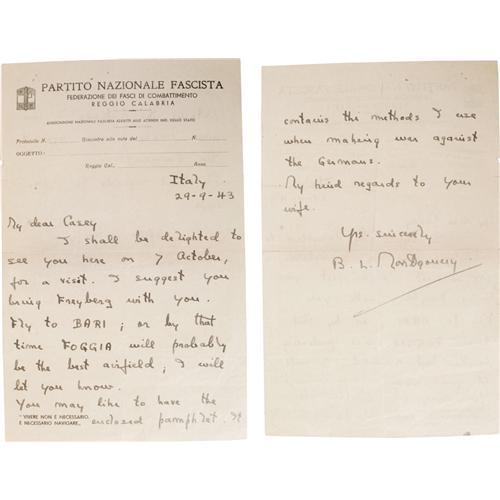 PARTITO NAZIONALE FASCISTA
FEDERAZIONE DEI FASCI DI COMBATTIMENTO
REGGIO CALABRIA
ASSOCIAZIONE NAZIONALE FASCISTA ADDETTI ALLE AZIENDE IND. DELLO STATO
Protocollo N. Riscontro alla nota del N.
OGGETTO:
Reggio Cal., Anno
Italy
29-9-43
My dear Casey
I shall be delighted to
see you here on 7 October,
for a visit. I suggest you
bring Freyberg with you.
Fly to BARI; or by that
time FOGGIA will probably
be the best airfield; I will
let you know.
You may like to have the
enclosed pamphlet. It
"VIVERE NON È NECESSARIO,
È NECESSARIO NAVIGARE„
contains the methods I use
when making war against
the Germans.
My kind regards to your
wife.
Yrs. sincerely
B. L. Montgomery